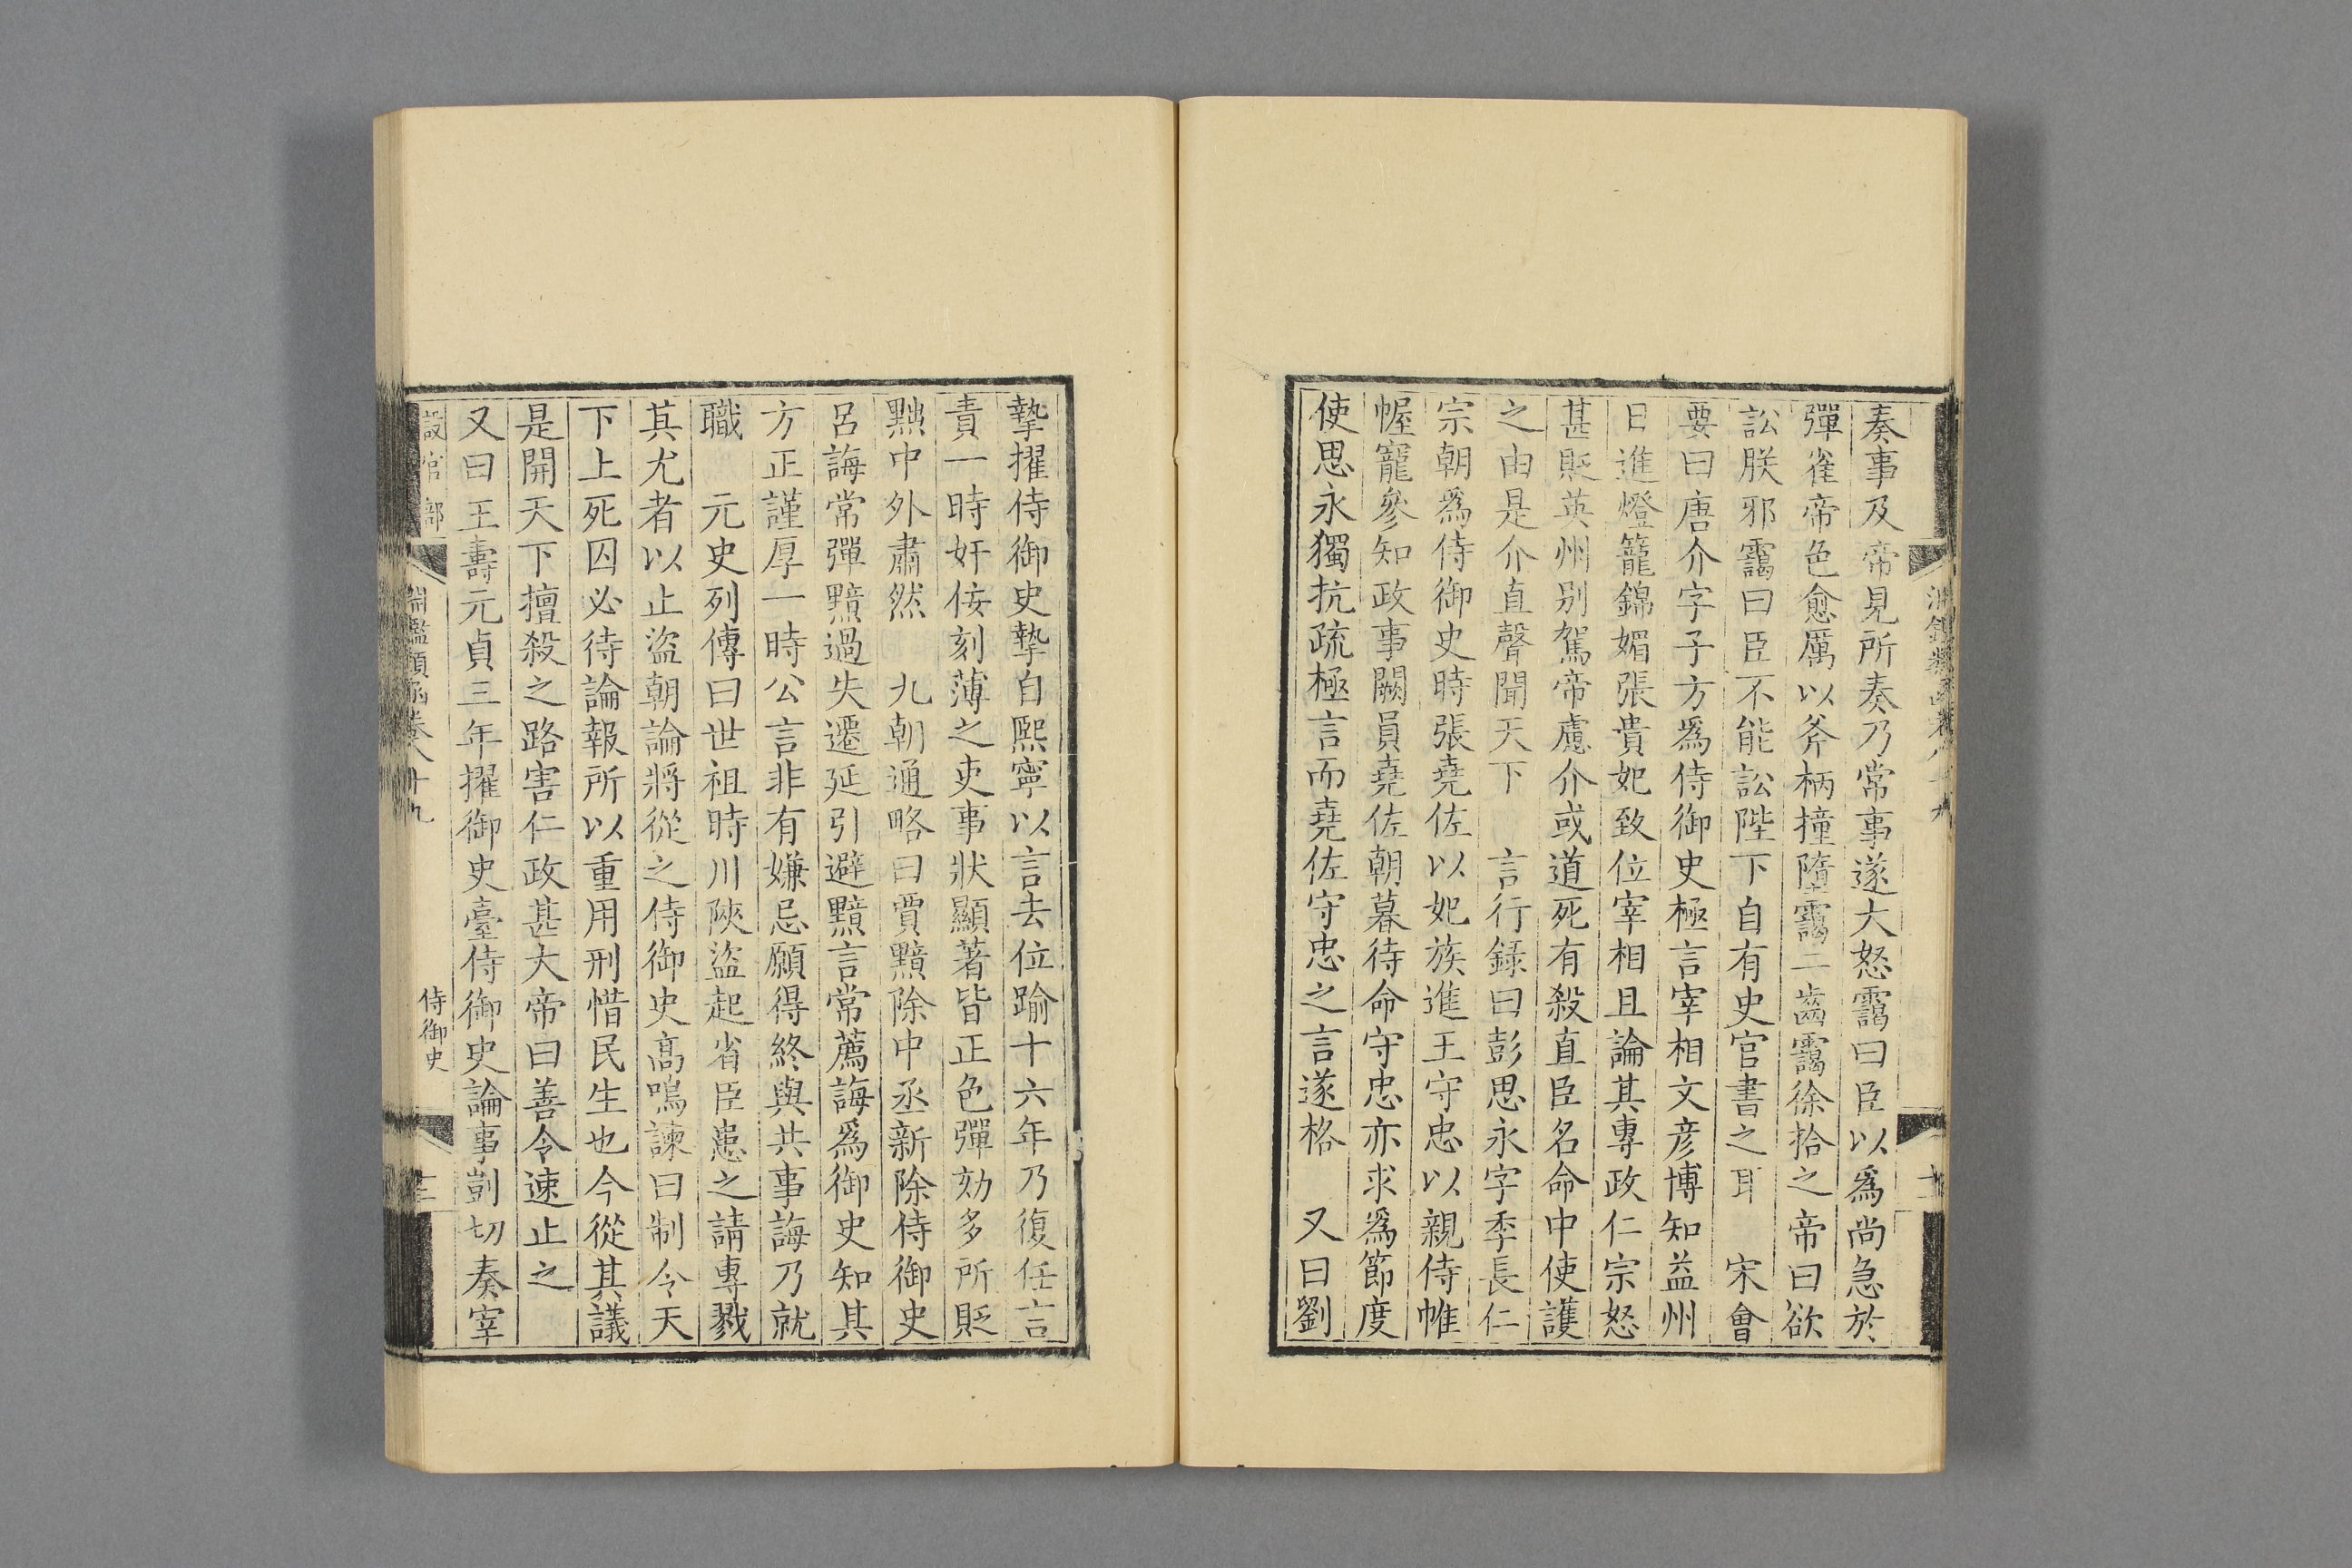 奏事及帝見所奏乃常事遂大怒靄曰臣以爲尚急於
彈雀帝色愈厲以斧柄撞墮靄二齒靄徐拾之帝曰欲
訟朕邪靄曰臣不能訟陛下自有史官書之耳　宋會
要曰唐介字子方爲侍御史極言宰相文彥博知益州
日進燈籠錦媚張貴妃致位宰相且論其專政仁宗怒
甚貶英州別駕帝慮介或道死有殺直臣名命中使護
之由是介直聲聞天下　言行錄曰彭思永字季長仁
宗朝爲侍御史時張堯佐以妃族進王守忠以親侍帷
幄寵參知政事闕員堯佐朝暮待命守忠亦求爲節度
使思永獨抗疏極言而堯佐守忠之言遂格　又曰劉
摯擢侍御史摯自熙寧以言去位踰十六年乃復任言
責一時奸佞刻薄之吏事狀顯著皆正色彈劾多所貶
黜中外肅然　九朝通略曰賈黯除中丞新除侍御史
呂誨常彈黯過失遷延引避黯言常薦誨爲御史知其
方正謹厚一時公言非有嫌忌願得終與共事誨乃就
職　元史列傳曰世祖時川陝盜起省臣患之請專戮
其尤者以止盜朝論將從之侍御史高鳴諫曰制令天
下上死囚必待論報所以重用刑惜民生也今從其議
是開天下擅殺之路害仁政甚大帝曰善令速止之
又曰王壽元貞三年擢御史臺侍御史論事剴切奏宰
設官部
淵鑑類函卷八十九
侍御史